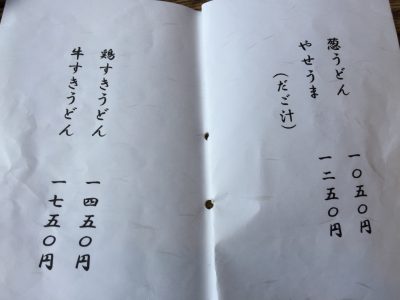 葱うどん
やせうま
(だご汁)
一〇五〇円
一二五〇円
鶏すきうどん
牛すきうどん
一四五〇円
一七五〇円